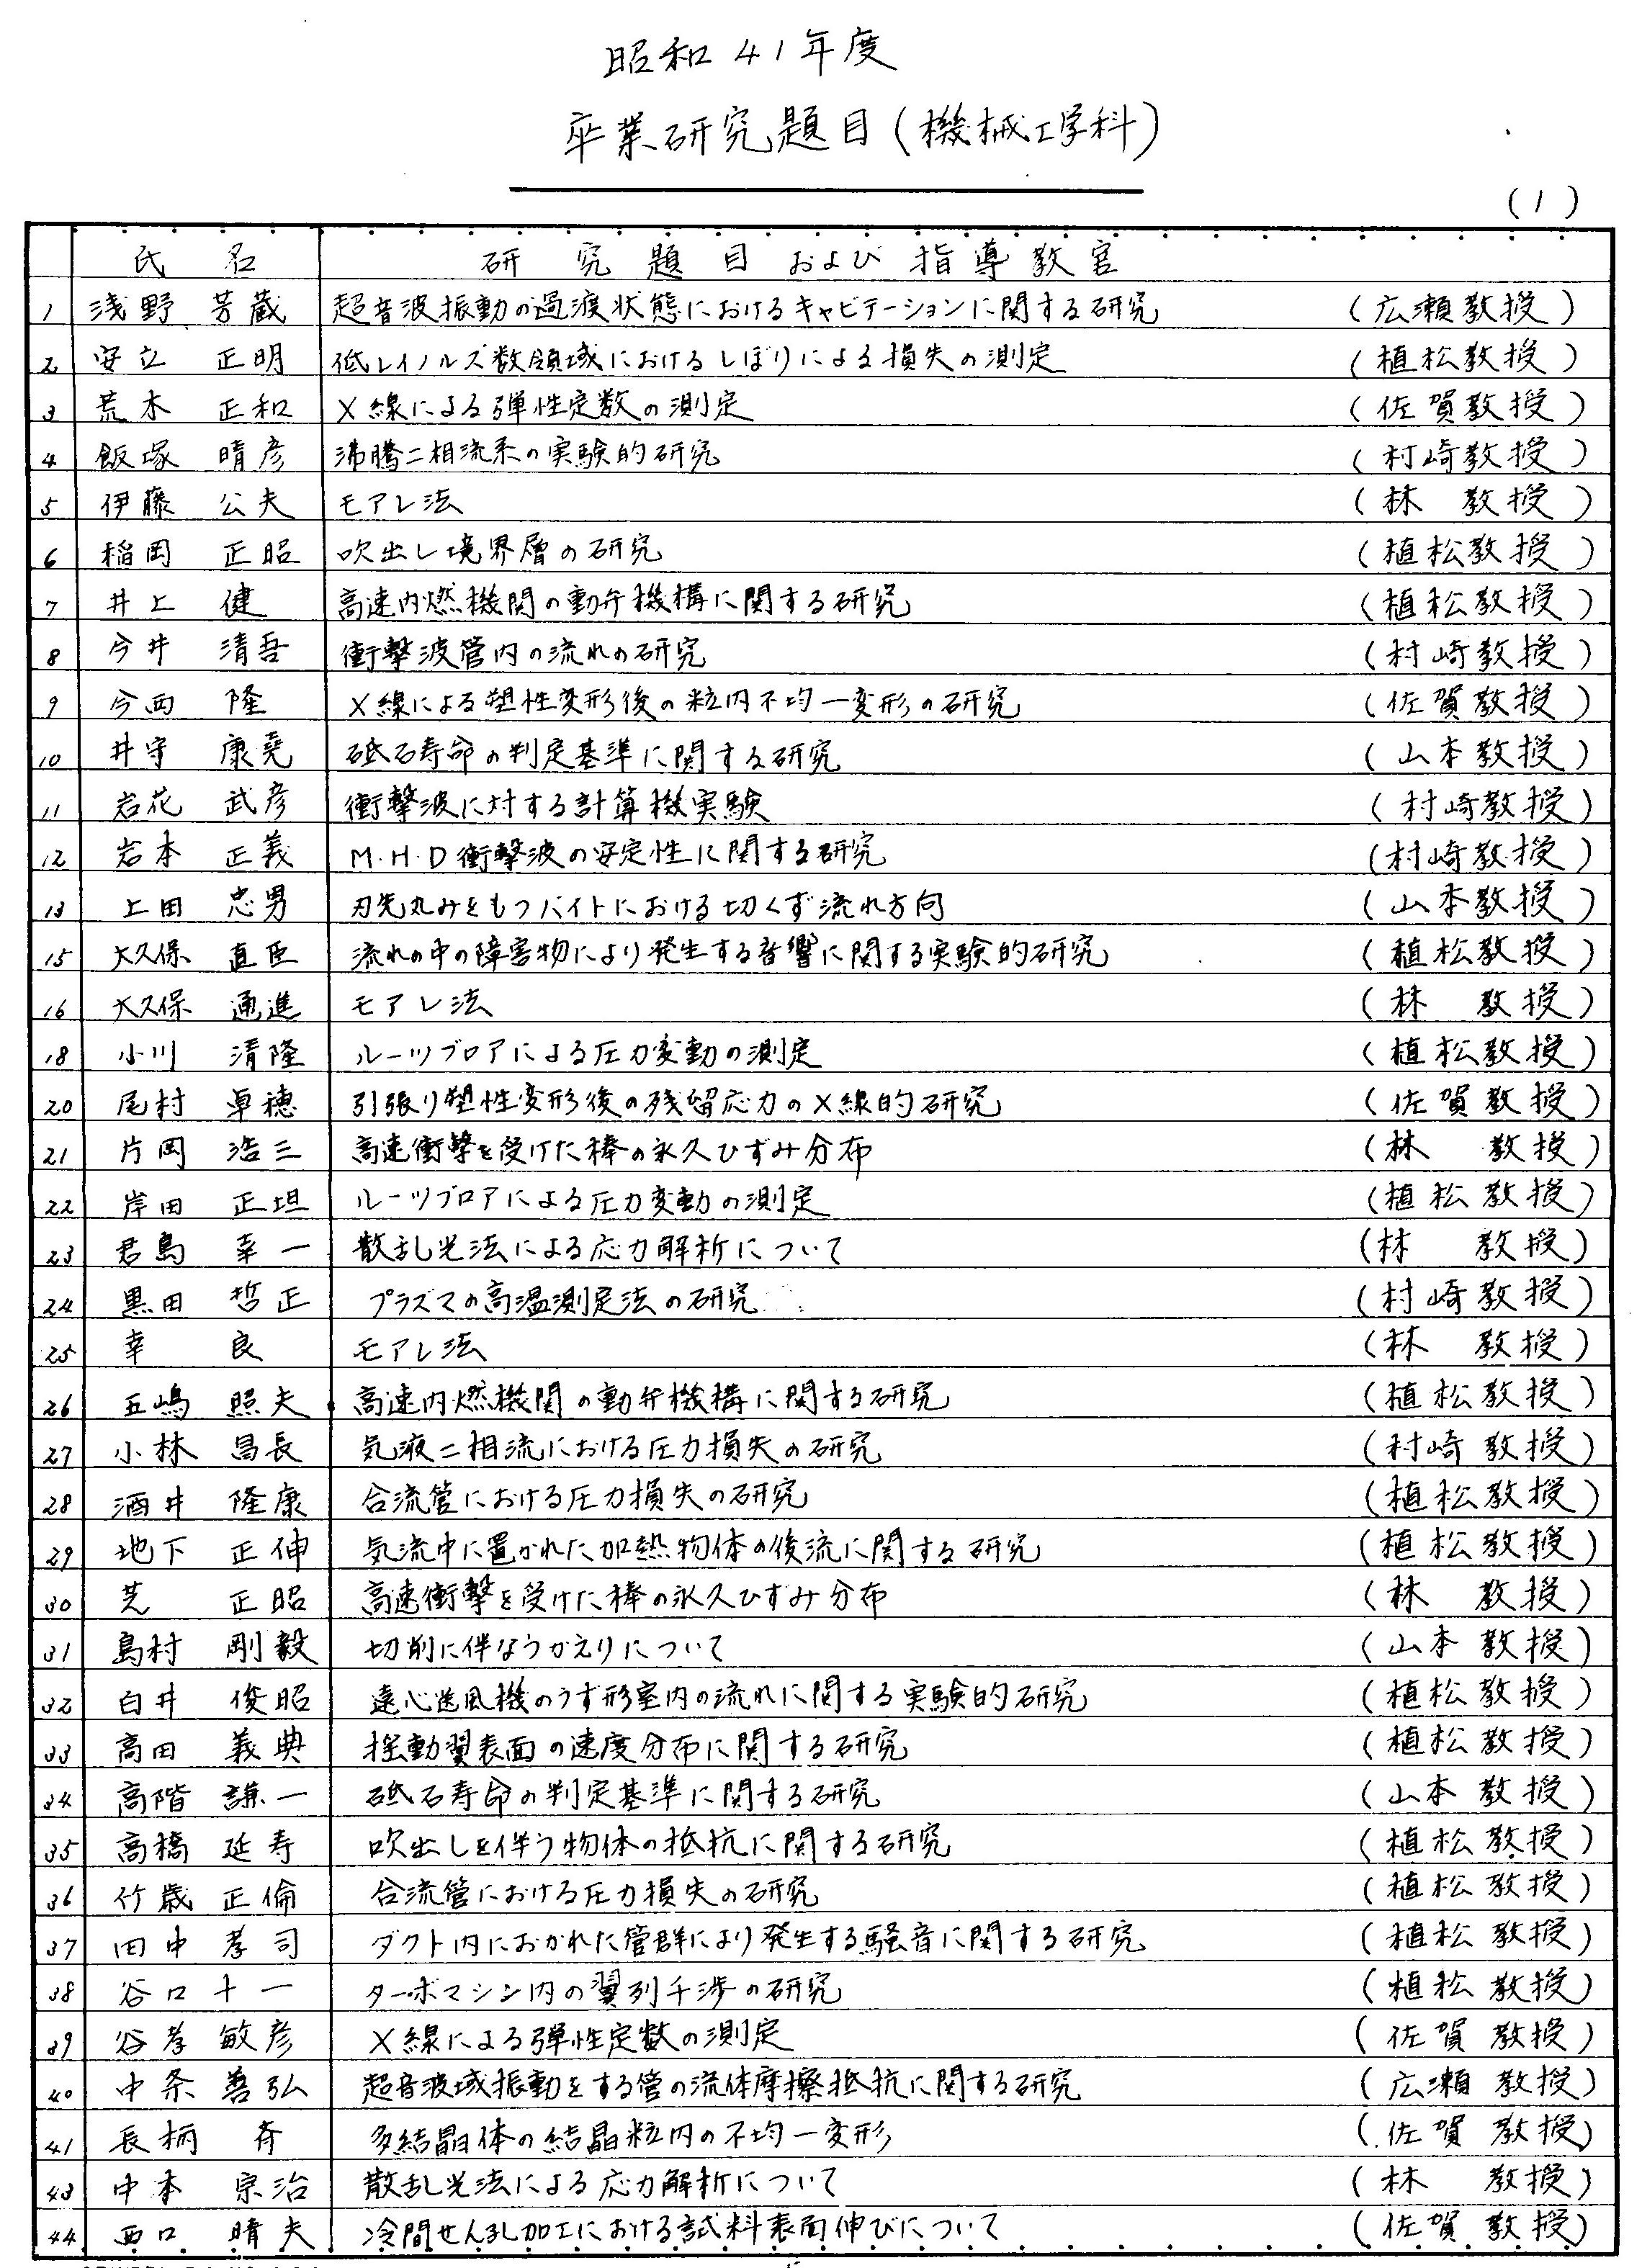 昭和41年度
卒業研究題目(機械工学科)
(1)
氏名 研究題目および指導教官
1 浅野 芳蔵 超音波振動の過渡状態におけるキャビテーションに関する研究 (広瀬教授)
2 安立 正明 低レイノルズ数領域におけるしぼりによる損失の測定 (植松教授)
3 荒木 正和 X線による弾性定数の測定 (佐賀教授)
4 飯塚 晴彦 沸騰二相流系の実験的研究 (村崎教授)
5 伊藤 公夫 モアレ法 (林 教授)
6 稲岡 正昭 吹出し境界層の研究 (植松教授)
7 井上 健 高速内燃機関の動弁機構に関する研究 (植松教授)
8 今井 清吾 衝撃波管内の流れの研究 (村崎教授)
9 今西 隆 X線による塑性変形後の粒内不均一変形の研究 (佐賀教授)
10 井守 康堯 砥石寿命の判定基準に関する研究 (山本教授)
11 岩花 武彦 衝撃波に対する計算機実験 (村崎教授)
12 岩本 正義 M.H.D衝撃波の安定性に関する研究 (村崎教授)
13 上田 忠男 刃先丸みをもつバイトにおける切くず流れ方向 (山本教授)
15 大久保 直臣 流れの中の障害物により発生する音響に関する実験的研究 (植松教授)
16 大久保 通進 モアレ法 (林 教授)
18 小川 清隆 ルーツブロアによる圧力変動の測定 (植松教授)
20 尾村 卓穂 引張り塑性変形後の残留応力のX線的研究 (佐賀教授)
21 片岡 浩三 高速衝撃を受けた棒の永久ひずみ分布 (林 教授)
22 岸田 正坦 ルーツブロアによる圧力変動の測定 (植松教授)
23 君島 幸一 散乱光法による応力解析について (林 教授)
24 黒田 哲正 プラズマの高温測定法の研究 (村崎教授)
25 幸 良 モアレ法 (林 教授)
26 五嶋 照夫 高速内燃機関の動弁機構に関する研究 (植松教授)
27 小林 昌長 気液二相流における圧力損失の研究 (村崎教授)
28 酒井 隆康 合流管における圧力損失の研究 (植松教授)
29 地下 正伸 気流中に置かれた加熱物体の後流に関する研究 (植松教授)
30 芝 正昭 高速衝撃を受けた棒の永久ひずみ分布 (林 教授)
31 島村 剛毅 切削に伴なうかえりについて (山本教授)
32 白井 俊昭 遠心送風機のうず形室内の流れに関する実験的研究 (植松教授)
33 高田 義典 揺動翼表面の速度分布に関する研究 (植松教授)
34 高階 謙一 砥石寿命の判定基準に関する研究 (山本教授)
35 高橋 延寿 吹出しを伴う物体の抵抗に関する研究 (植松教授)
36 竹歳 正倫 合流管における圧力損失の研究 (植松教授)
37 田中 孝司 ダクト内におかれた管群により発生する騒音に関する研究 (植松教授)
38 谷口 十一 ターボマシン内の翼列干渉の研究 (植松教授)
39 谷孝 敏彦 X線による弾性定数の測定 (佐賀教授)
40 中条 善弘 超音波域振動をする管の流体摩擦抵抗に関する研究 (広瀬教授)
41 長柄 斉 多結晶体の結晶粒内の不均一変形 (佐賀教授)
43 中本 宗治 散乱光法による応力解析について (林 教授)
44 西口 晴夫 冷間せん孔加工における試料表面伸びについて (佐賀教授)